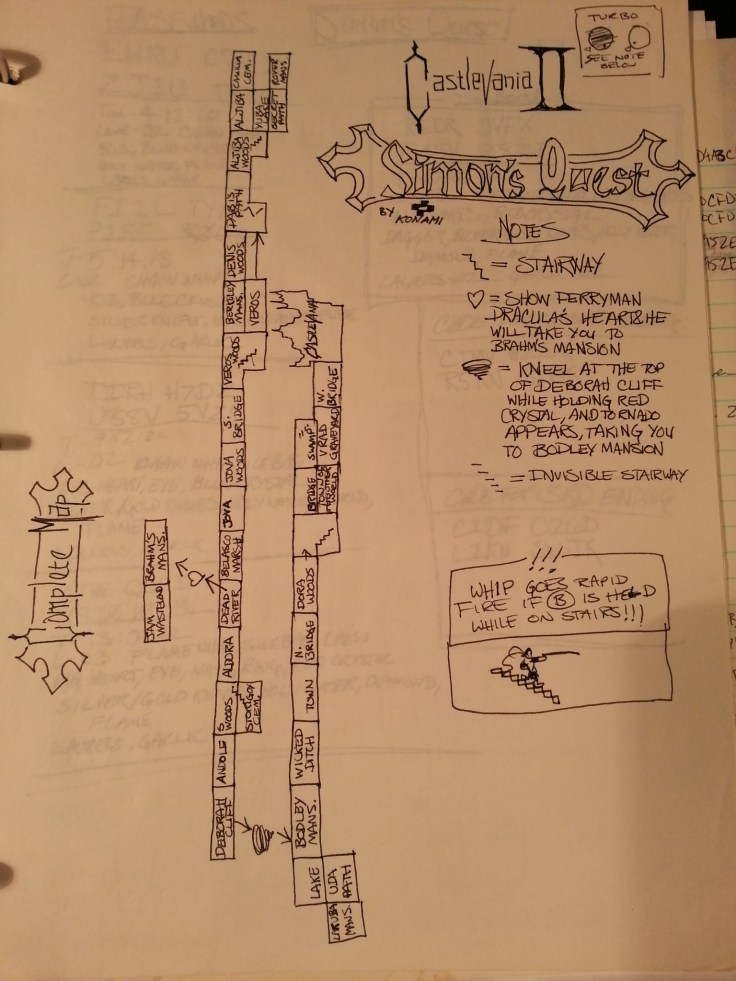 TURBO
SEE NOTE
BELOW
Castlevania II
Simon's Quest
BY KONAMI
NOTES
= STAIRWAY
♡ = SHOW FERRYMAN
DRACULA'S HEART & HE
WILL TAKE YOU TO
BRAHM'S MANSION
= KNEEL AT THE TOP
OF DEBORAH CLIFF
WHILE HOLDING RED
CRYSTAL, AND TORNADO
APPEARS, TAKING YOU
TO BODLEY MANSION
= INVISIBLE STAIRWAY
!!!
WHIP GOES RAPID
FIRE IF B IS HELD
WHILE ON STAIRS!!!
Complete Map
JAM
WASTELAND
BRAHM'S
MANS.
DEBORAH
CLIFF
ANDOLE
S
WOODS
STORIGOY
CEM.
ALDORA
DEAD
RIVER
BELASCO
MARSH
JOVA
JOVA
WOODS
S.
BRIDGE
VEROS WOODS
BERKELEY
MANS.
VEROS
DENIS
WOODS
DABI'S
PATH
ALJIBA
WOODS
ALJIBA
YUBA
LAKE
SECRET
PATH
CAMILLA
CEM.
ROVER
MANS.
LARUBA
MANS.
LAKE
UDA
PATH
BODLEY
MANS.
WICKED
DITCH
TOWN
N.
BRIDGE
DORA
WOODS
BRIDGE
SWAMP
VRAD
GRAVEYARD
W.
BRIDGE
CASTLEVANIA